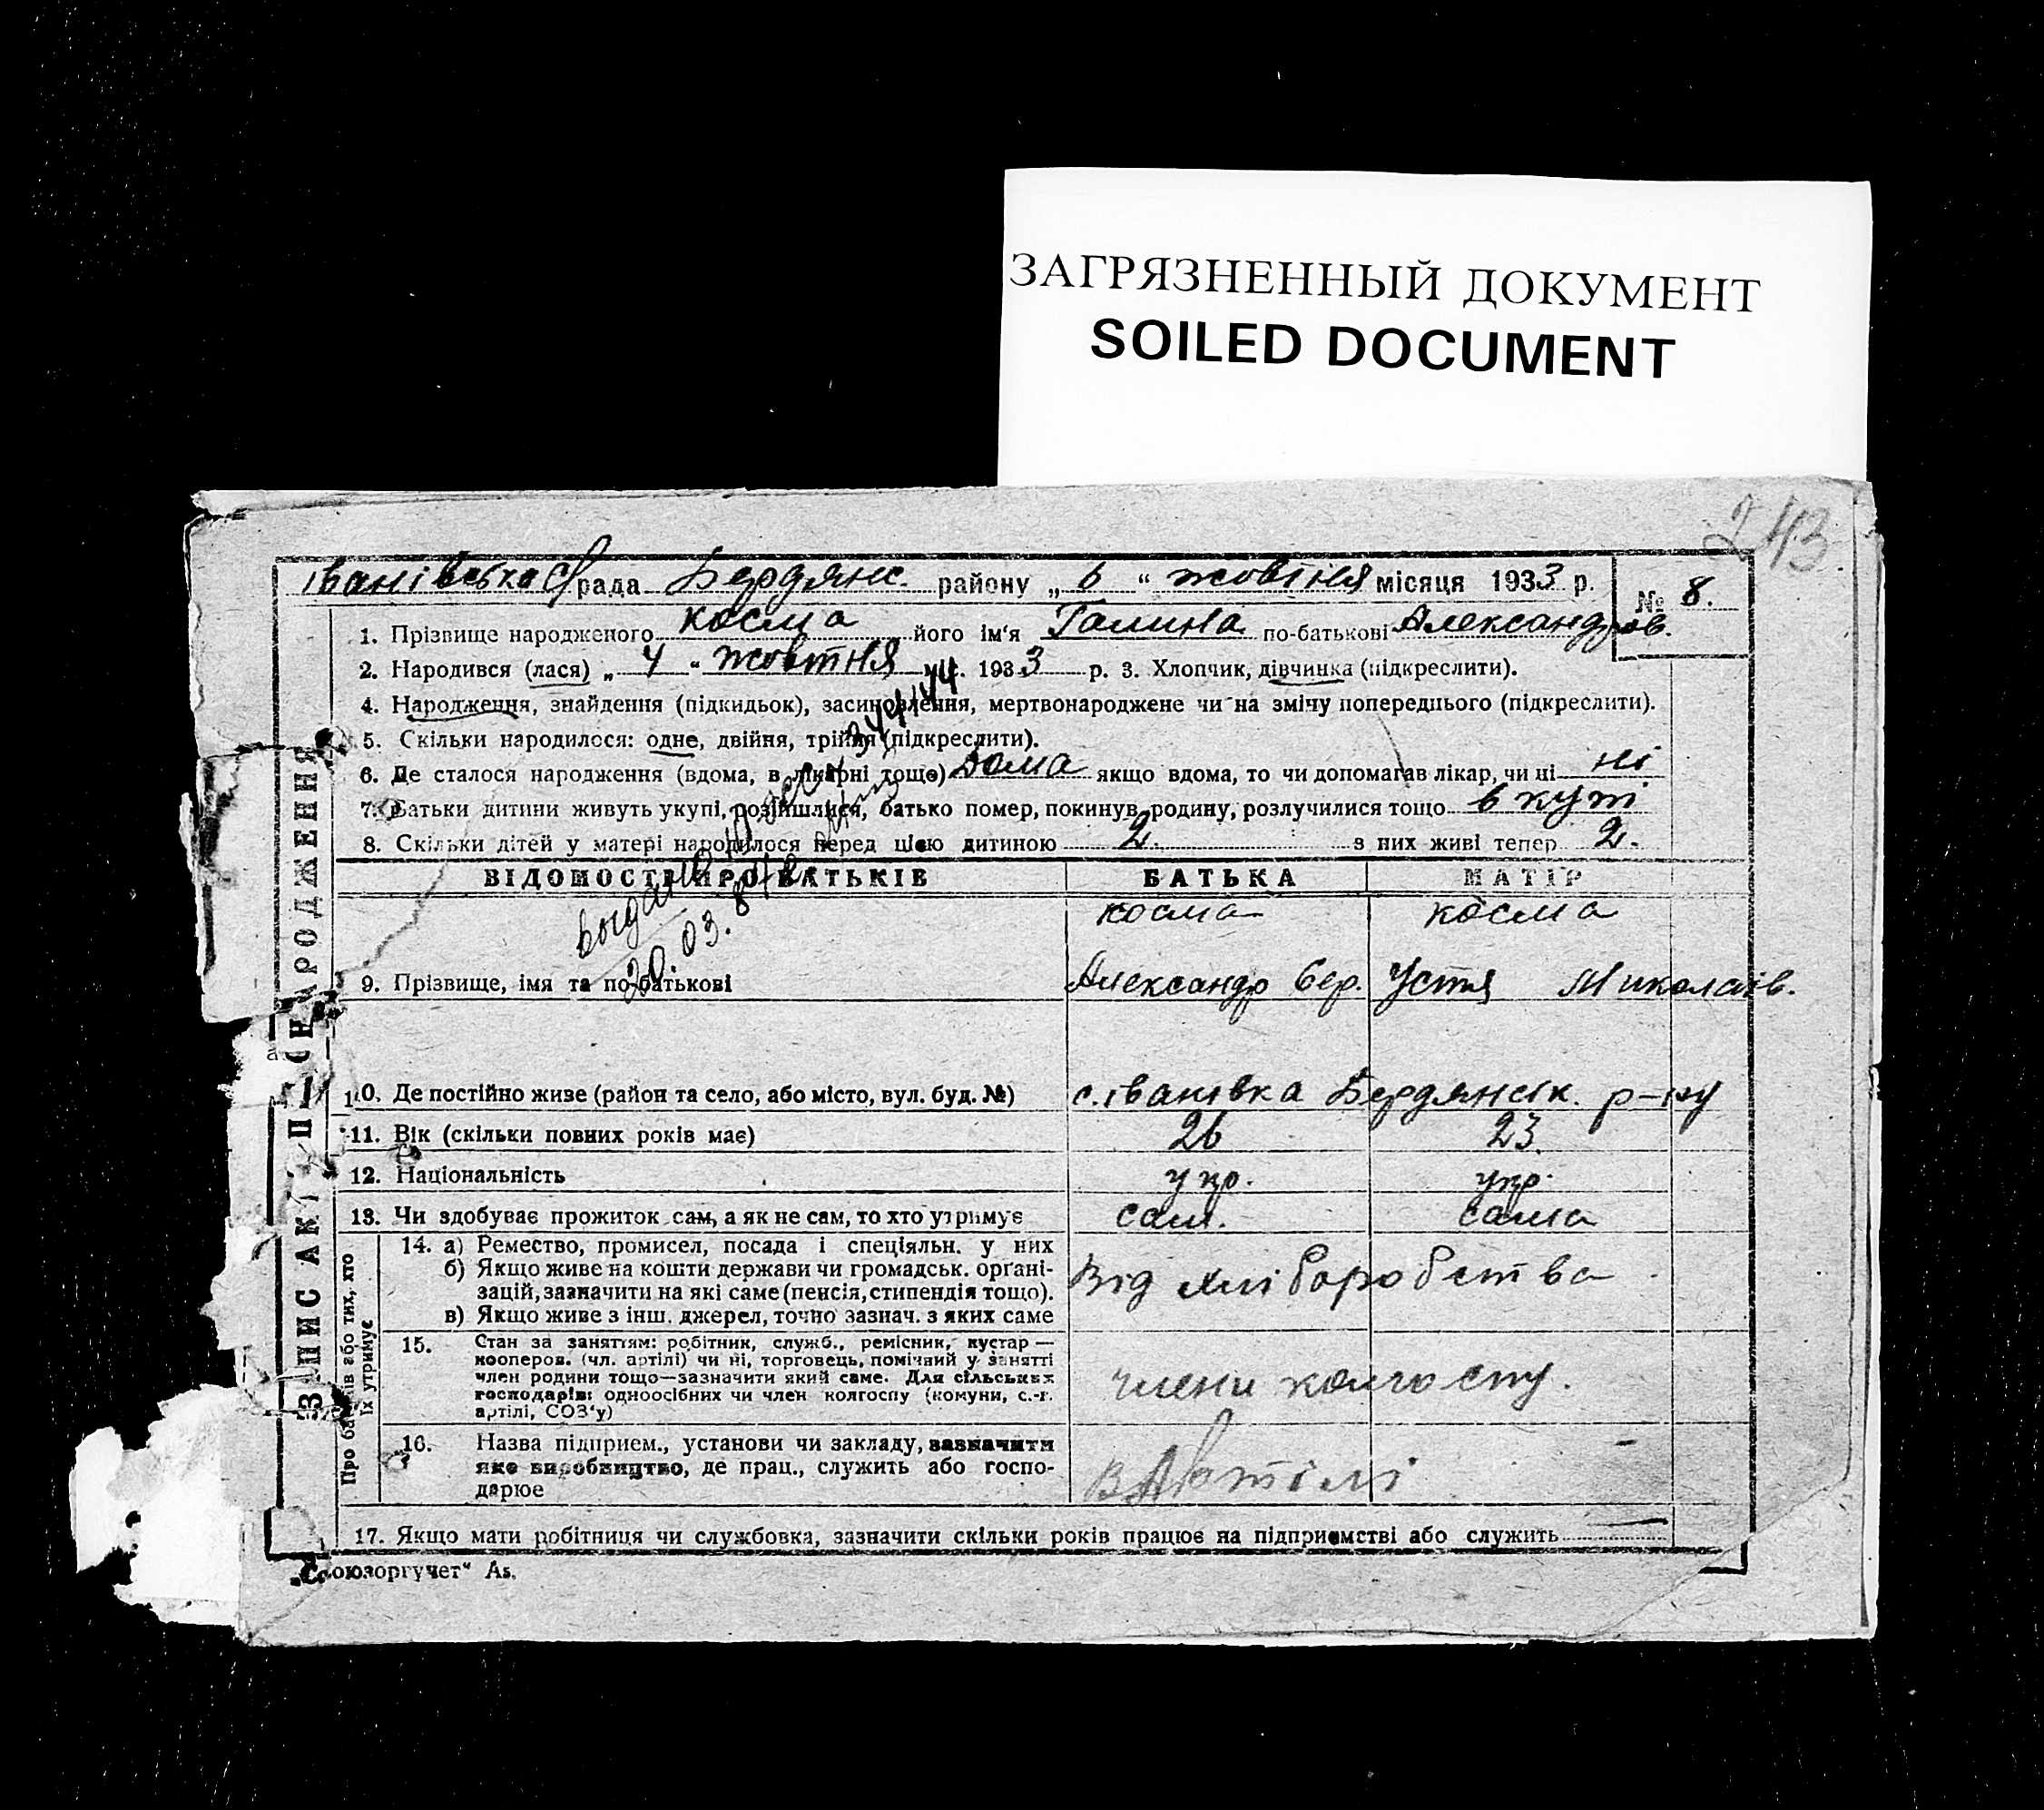 ЗАГРЯЗНЕННЫЙ ДОКУМЕНТ
SOILED DOCUMENT
243.
Іванівська с/рада Бердянс. району „ 6 “ жовтня місяця 1933 р. № 8.
1. Прізвище народженого Косма його ім'я Галина по-батькові Александров.
2. Народився (лася) „ 4 “ жовтня 1933 р. 3. Хлопчик, дівчинка (підкреслити).
4. Народження, знайдення (підкидьок), засиновлення, мертвонароджене чи на зміну попереднього (підкреслити).
5. Скільки народилося: одне, двійня, трійня (підкреслити).
6. Де сталося народження (вдома, в лікарні тощо) Дома якщо вдома, то чи допомагав лікар, чи ні ні
7. Батьки дитини живуть укупі, розійшлися, батько помер, покинув родину, розлучилися тощо в купі
8. Скільки дітей у матері народилося перед цією дитиною 2. з них живі тепер 2.
ВІДОМОСТІ ПРО БАТЬКІВ БАТЬКА МАТІР
Косма Косма
9. Прізвище, імя та по-батькові Александр Устя Миколаїв.
20.03.
10. Де постійно живе (район та село, або місто, вул. буд. №) с. Іванівка Бердянськ. р-ну
11. Вік (скільки повних років має) 26 23
12. Національність укр. укр.
13. Чи здобуває прожиток сам, а як не сам, то хто утримує сам. сама
14. а) Ремество, промисел, посада і спеціяльн. у них
б) Якщо живе на кошти держави чи громадськ. органі-
зацій, зазначити на які саме (пенсія, стипендія тощо). Від хліборобства
в) Якщо живе з інш. джерел, точно зазнач. з яких саме
15. Стан за заняттям: робітник, служб., ремісник, кустар —
кооперов. (чл. артілі) чи ні, торговець, помічний у занятті
член родини тощо—зазначити який саме. Для сільських
господарів: одноосібних чи член колгоспу (комуни, с.-г.
артілі, СОЗ'у)
члени колгоспу.
16. Назва підприєм., установи чи закладу, зазначити
яке виробництво, де прац., служить або госпо-
дарює
В Артілі —
17. Якщо мати робітниця чи службовка, зазначити скільки років працює на підприємстві або служить —
Про батьків або тих, хто
їх утримує
„Союзоргучет“ А5.